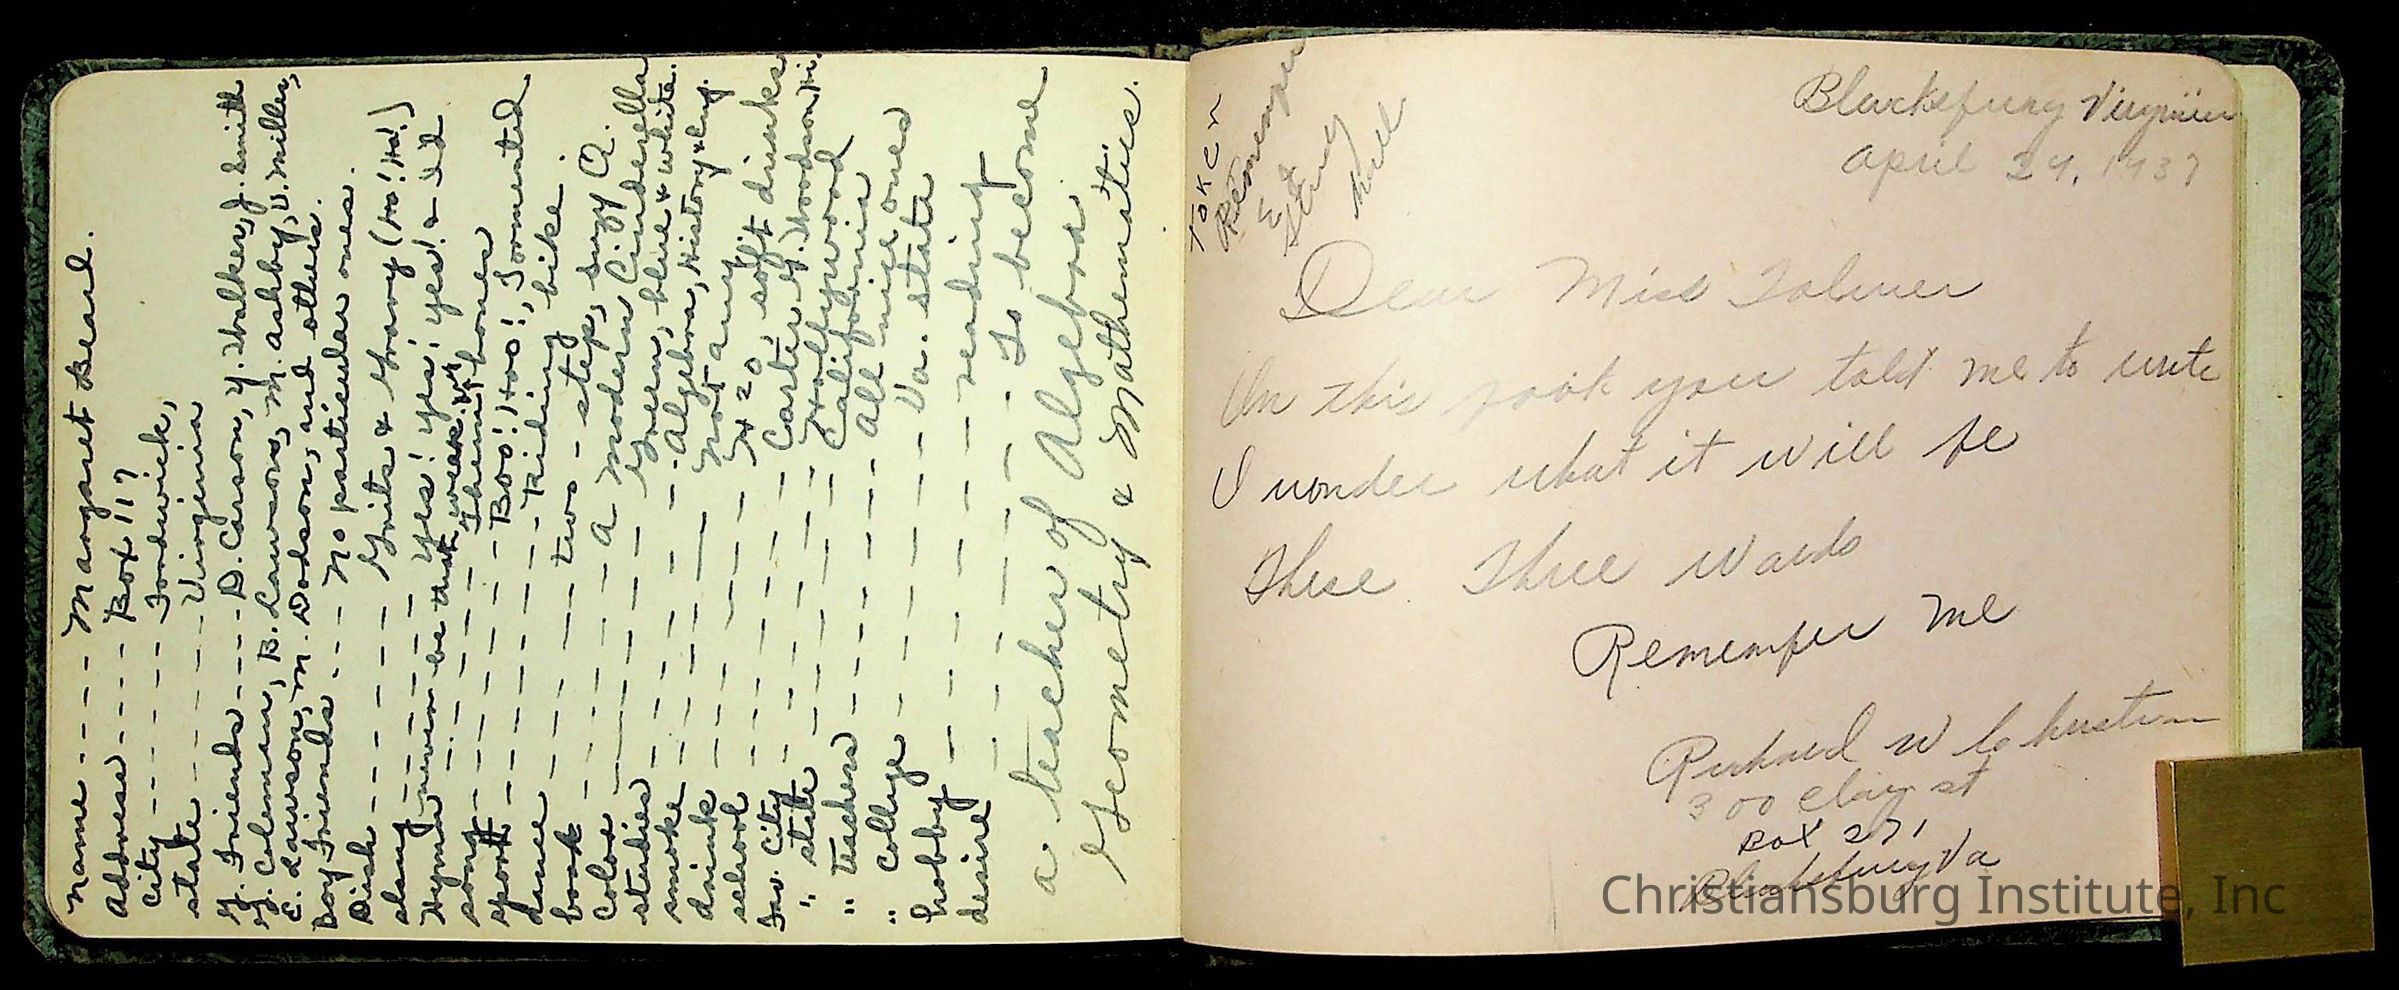 Name ---- Margaret Beard.
Address ---- Box 117
City ---- Fordwick,
State ---- Virginia
G. Friends --- D. Carson, Y. Walker, J. Smith
G. Coleman, B. Lawson, M. Ashby, V. Miller,
E. Lawson, M. Dodson, and others.
Boy Friends --- No particular ones.
Dish ---- Grits & Gravy (Ha! Ha!)
slang ---- Yes! Yes! Yes! & I I
Hymn
song ---- Them there
sport ---- Boo! Hoo!, Tormented
dance ---- Riding bike.
book ---- two-step, Suzy Q.
Color ---- A Modern Cinderella
studies ---- Green, blue & white.
smoke ---- Algebra, History & Eng.
drink ---- Not any
school ---- H2O, soft drinks
Fav. City ---- Carter G. Woodson Hi.
" state ---- Hollywood
California
" teachers ---- All nice ones
" College ---- Va. State
hobby ---- reading
desire ---- To become
a teacher of Algebra,
Geometry & Mathematics.
TOKEN
Remember
E
&
Hall
Blacksburg Virginia
April 24, 1937
Dear Miss Tolmer
In this book you told me to write
I wonder what it will be
These Three Words
Remember Me
Richard W
300 Clay st
Box 271
Blacksburg Va
Christiansburg Institute, Inc